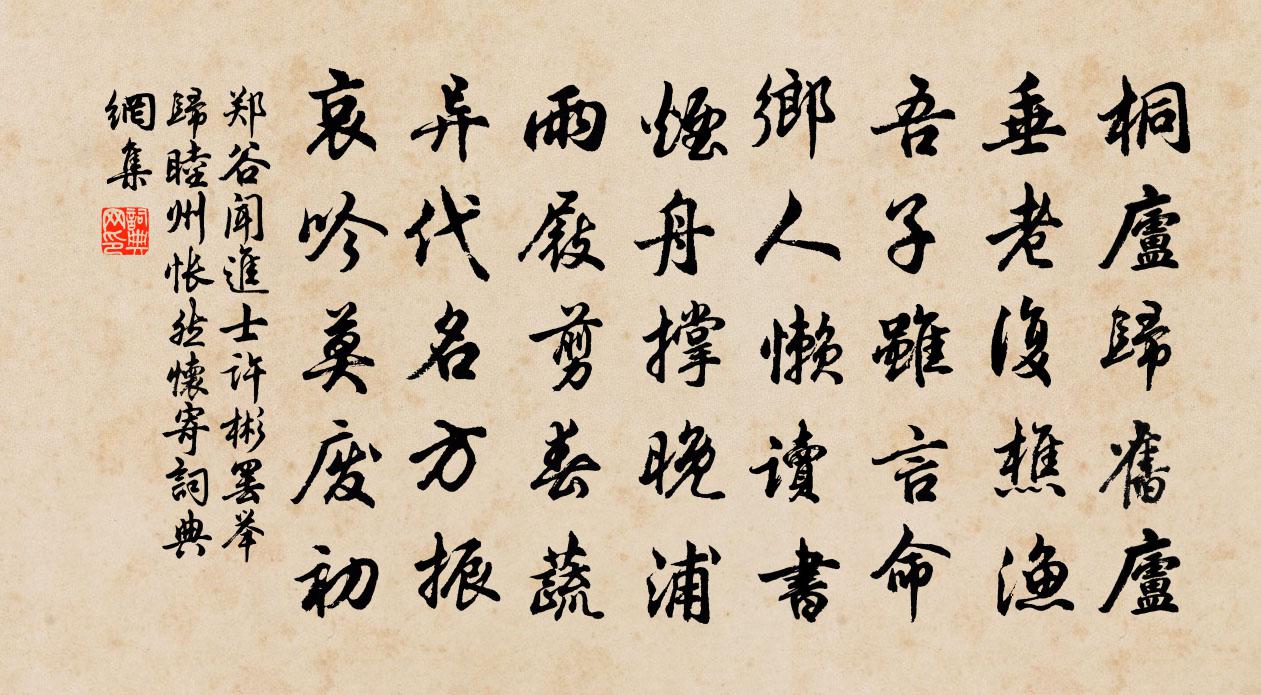 桐廬歸舊廬
垂老復樵漁
吾子雖言命
鄉人懶讀書
煙舟撑晚浦
雨屐剪春蔬
异代名方振
哀吟莫废初
郑谷闻進士许彬罢举
歸睦州怅然懷寄詞典
網集
詞典网印